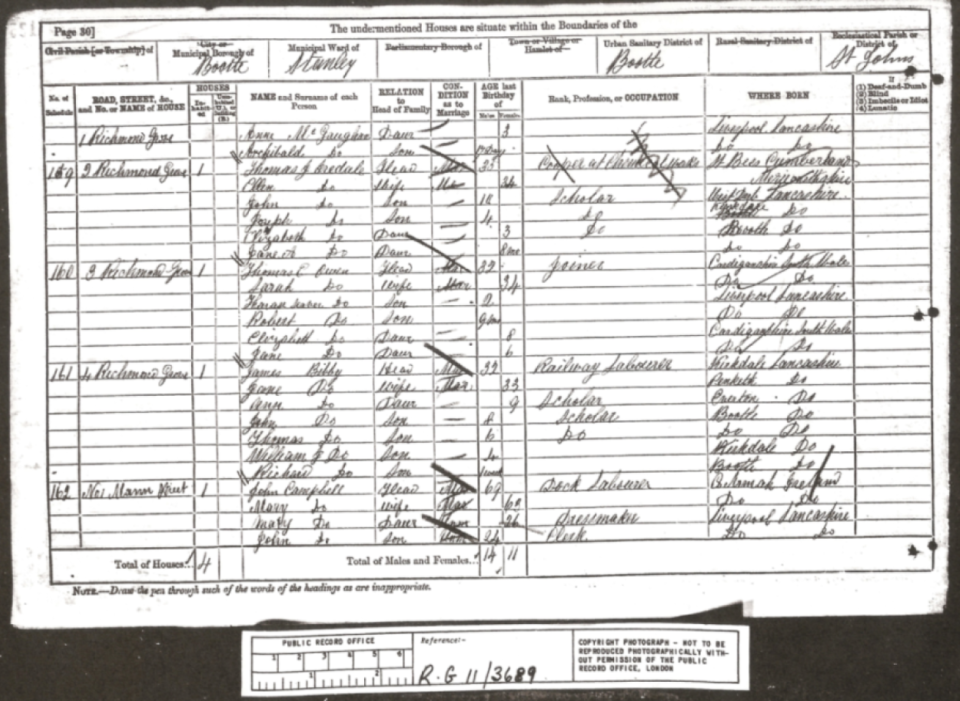 Page 36]
The undermentioned Houses are situate within the Boundaries of the
Civil Parish [or Township] of
City or Municipal Borough of
Bootle
Municipal Ward of
Stanley
Parliamentary Borough of
Town or Village or Hamlet of
Urban Sanitary District of
Bootle
Rural Sanitary District of
Ecclesiastical Parish or District of
St Johns
No. of Schedule
ROAD, STREET, &c., and No. or NAME of HOUSE
HOUSES
NAME and Surname of each Person
RELATION to Head of Family
CONDITION as to Marriage
AGE last Birthday of
Males
Females
Rank, Profession, or OCCUPATION
WHERE BORN
If
(1) Deaf-and-Dumb
(2) Blind
(3) Imbecile or Idiot
(4) Lunatic
1 Richmond Grove Anne Daur 3 Liverpool Lancashire
Archibald Do Son Do Do
159 2 Richmond Grove 1 Thomas J Head Mar Cooper at Chemical Works St Bees Cumberland
Ellen Do Wife
John Do Son 10 Scholar Lancashire
Joseph Do Son 4 Do Do
Elizabeth Do Daur 3 Do Bootle Do
Do Daur Do Do
160 3 Richmond Grove 1 Thomas Owen Head Mar 32 Joiner Cardiganshire South Wales
Sarah Do Wife Mar 34 Do Do
Do Son Liverpool Lancashire
Robert Do Son Do Do
Elizabeth Do Daur 8 Cardiganshire South Wales
Jane Do Daur 6 Do Do
161 4 Richmond Grove 1 James Bibby Head Mar 32 Railway Labourer Kirkdale Lancashire
Jane Do Wife Mar 33 Penketh Do
Ann Do Daur 9 Scholar Do
John Do Son 8 Scholar Bootle Do
Thomas Do Son 6 Do Do Do
William J Do Son 4 Kirkdale Do
Richard Do Son Bootle Do
162 No 1 Mann Street 1 John Campbell Head Mar 69 Dock Labourer Ireland
Mary Do Wife Mar Do Do
Mary Do Daur 26 Dressmaker Liverpool Lancashire
John Do Son 24 Clerk Do Do
Total of Houses.. 4
Total of Males and Females.. 14 11
NOTE.—Draw the pen through such of the words of the headings as are inappropriate.
PUBLIC RECORD OFFICE
1 2 3 4 5 6
1 2
Reference:-
R.G 11/3689
COPYRIGHT PHOTOGRAPH - NOT TO BE
REPRODUCED PHOTOGRAPHICALLY WITH-
OUT PERMISSION OF THE PUBLIC
RECORD OFFICE, LONDON